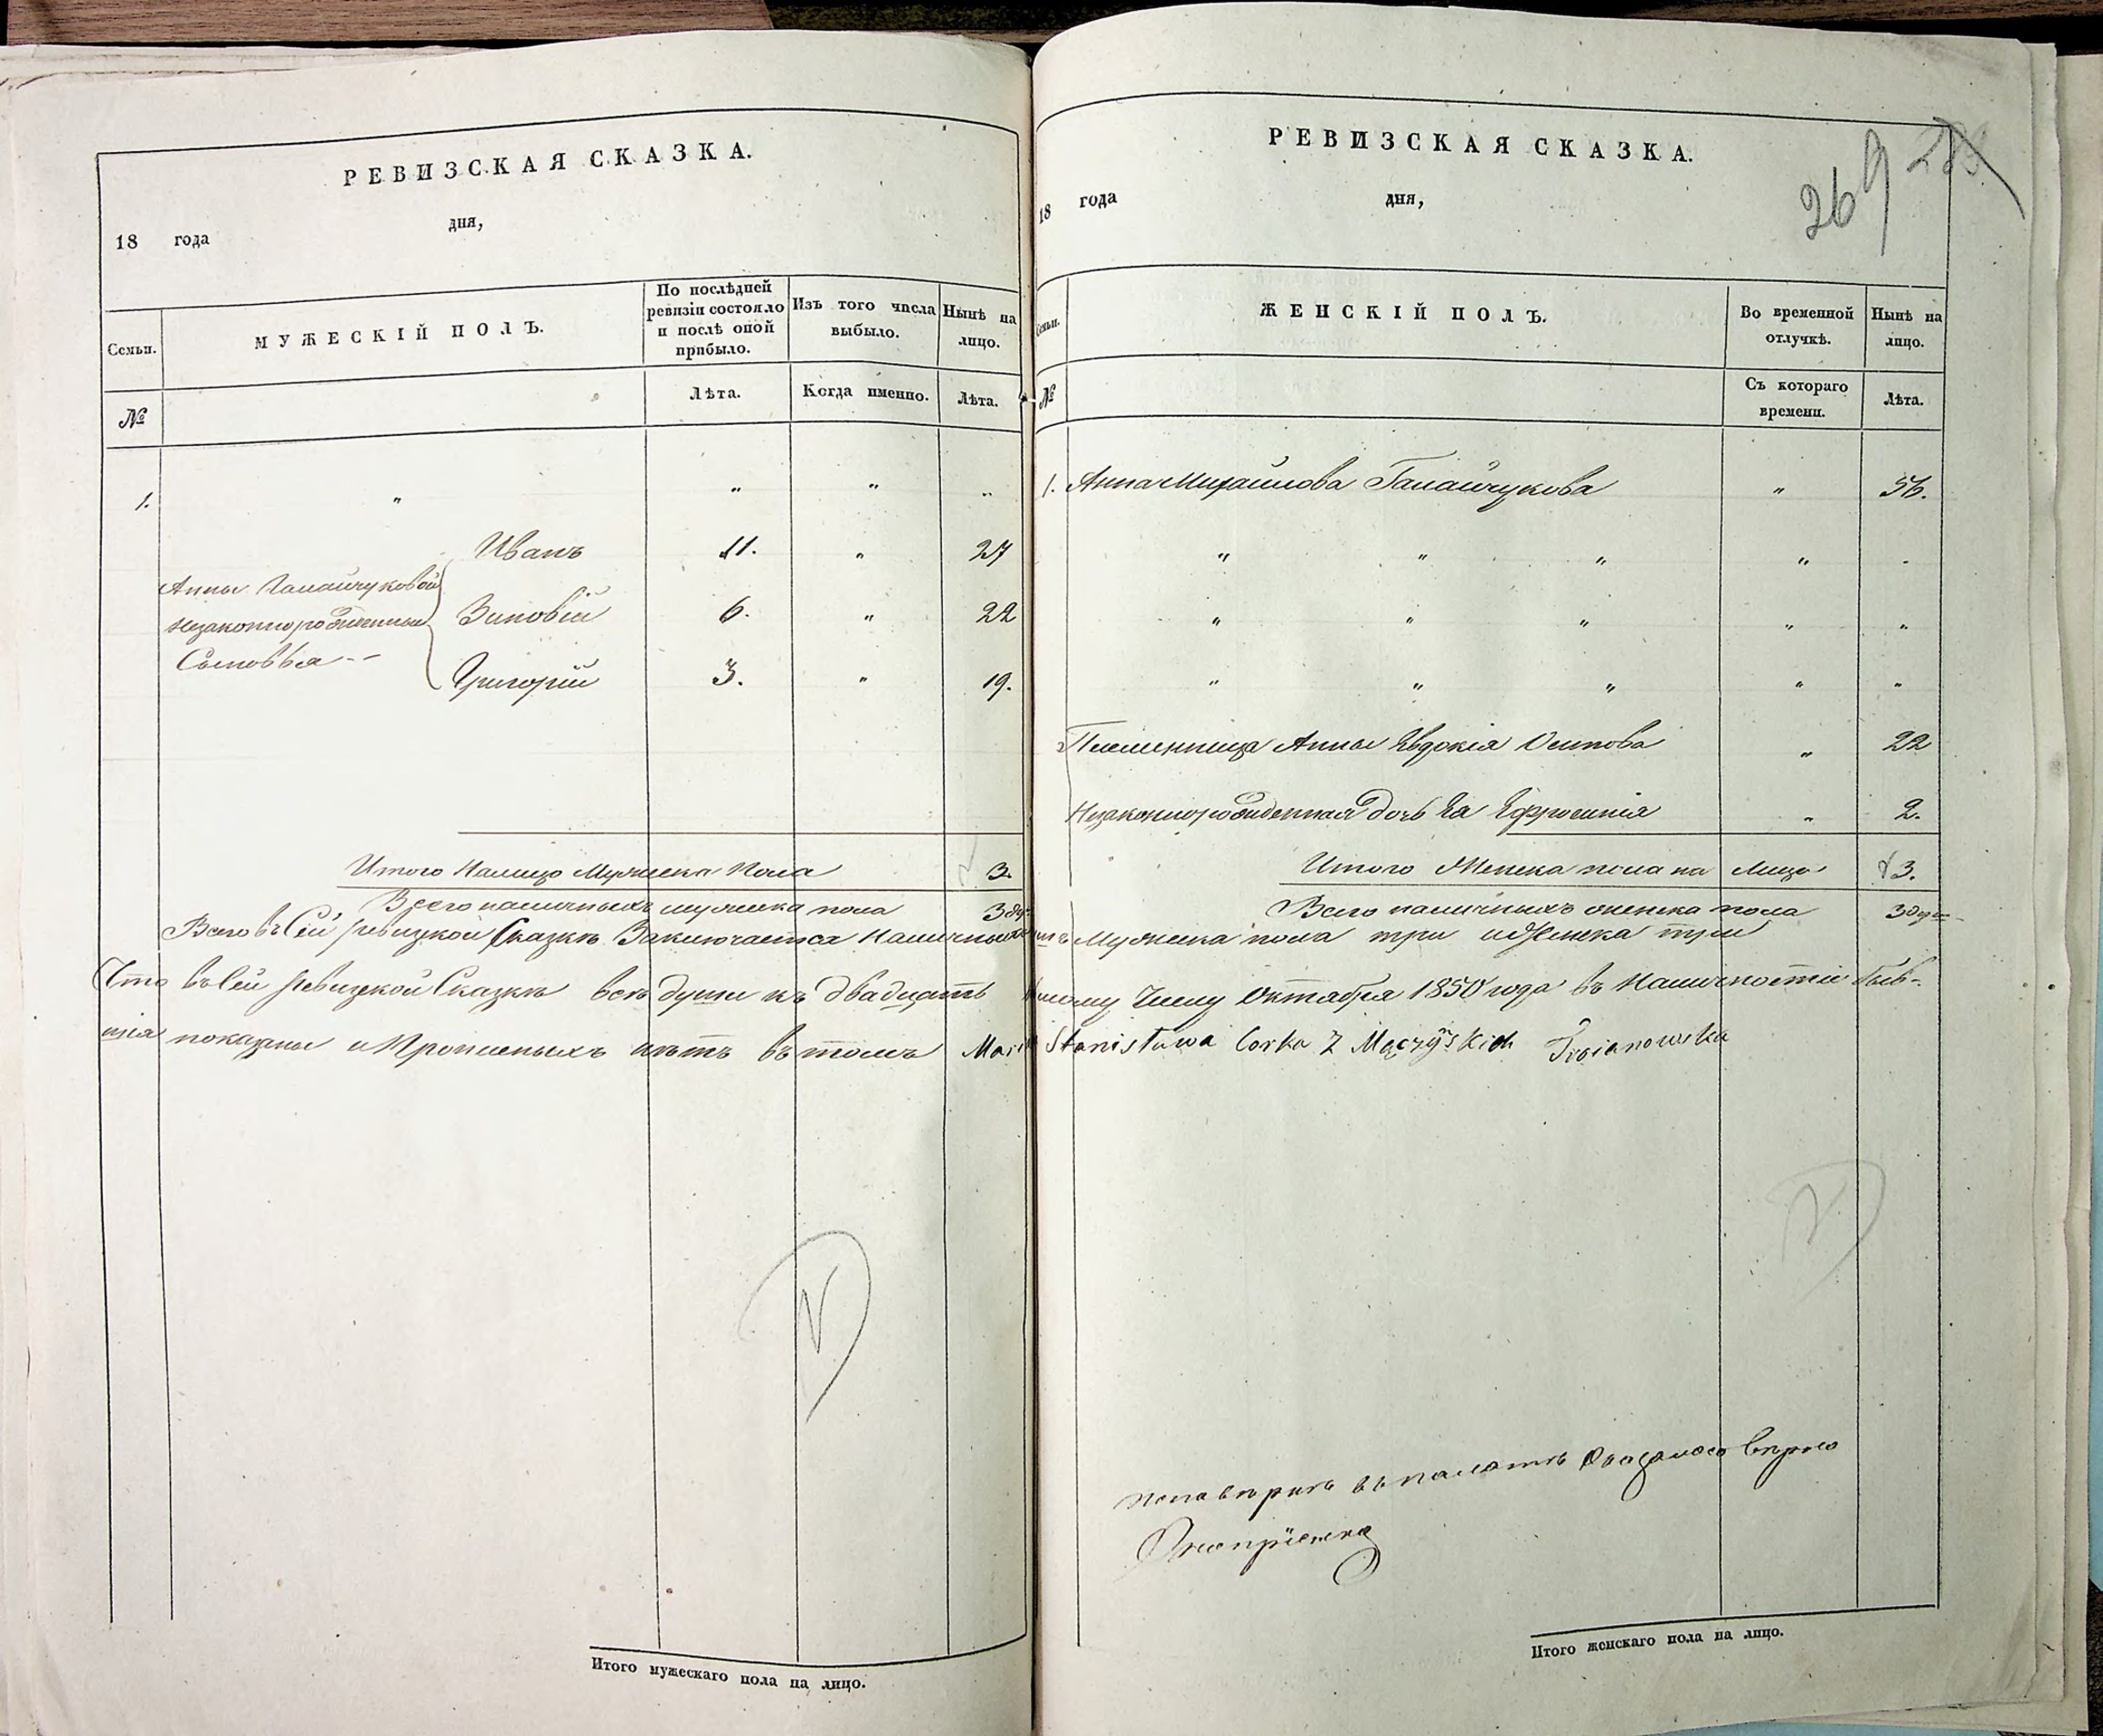 РЕВИЗСКАЯ СКАЗКА.
18 года дня,
Семьи.
МУЖЕСКІЙ ПОЛЪ.
По послѣдней
ревизіи состояло
и послѣ оной
прибыло.
Изъ того числа
выбыло.
Нынѣ на
лицо.
№
Лѣта.
Когда именно.
Лѣта.
1. " " " "
Иванъ 11. " 27
Анны Галайчуковой
незаконнорожденные
Сыновья --
Зиновій 6. " 22
Григорій 3. " 19.
Итого Налицо Мужеска Пола 3.
Всего наличныхъ мужеска пола 3 душ
Всего въ Сей ревизкой Сказкѣ Заключается Наличныхъ
Что въ Сей ревизкой Сказкѣ всѣ души къ двадцать
щія показаны и Прописныхъ нѣтъ въ томъ
Итого мужескаго пола на лицо.
РЕВИЗСКАЯ СКАЗКА.
18 года дня,
269
Семьи.
ЖЕНСКІЙ ПОЛЪ.
Во временной
отлучкѣ.
Нынѣ на
лицо.
№
Съ котораго
времени.
Лѣта.
1. Анна Михайлова Галайчукова " 56.
" " " " "
" " " " "
" " " " "
Племенница Анны Евдокія Осипова " 22
Незаконнорожденная дочь Ея Ефросинія " 2.
Итого Женска пола на Лицо 3.
Всего наличныхъ женска пола 3 душ
Мужеска пола три и Женска три
Числу Октября 1850 года въ Наличностіи быв-
Stanisława Corka Z Mączyskich Troianowska
Итого женскаго пола на лицо.